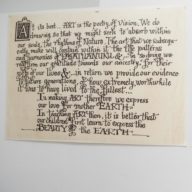 At its best - ART is the poetry of Vision. We do
drawing so that we might seek to absorb within
our souls, the rhythms of Nature. The art that we subsequently
make will contain within it the patterns
and harmonies of & in so doing we
our gratitude towards our ancestry. For their
of our lives & in return we provide our evidence
generations, of how extremely worthwhile
it was to have lived to the fullest.
In making ART therefore we express
our love for mother EARTH.
In teaching ART then, it is better that
our children first learn to express the
BEAUTY of the EARTH